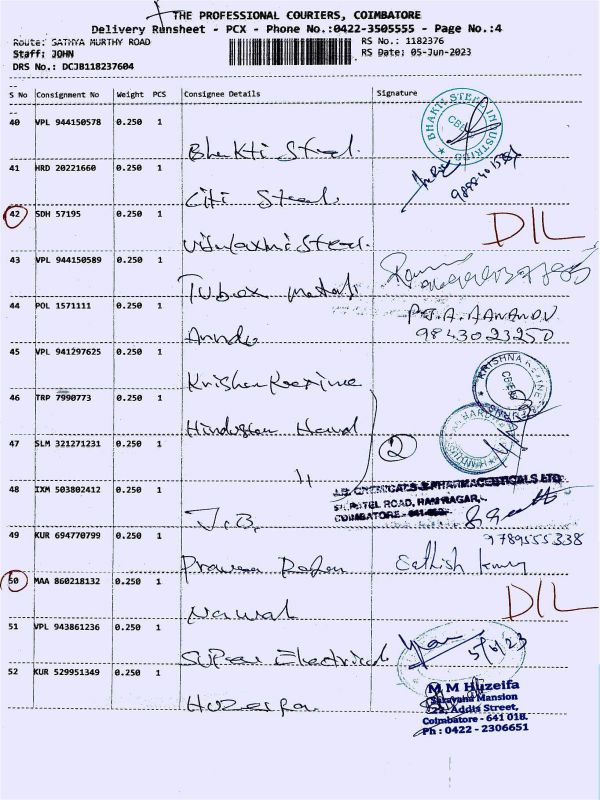 THE PROFESSIONAL COURIERS, COIMBATORE
Delivery Runsheet - PCX - Phone No.:0422-3505555 - Page No.:4
Route: SATHYA MURTHY ROAD
RS No.: 1182376
Staff: JOHN
RS Date: 05-Jun-2023
DRS No.: DCJB118237604
S No Consignment No Weight PCS Consignee Details Signature
40 VPL 944150578 0.250 1
Bhakti Steel.
BHAKTI STEEL INDUSTRIES
CBE
41 HRD 20221660 0.250 1
Citi Steel.
42 SDH 57195 0.250 1
Steel.
DIL
43 VPL 944150589 0.250 1
Tubox metals
44 POL 1571111 0.250 1
P.T.A. AANANDN
9843023250
45 VPL 941297625 0.250 1
Krishna Rexine
KRISHNA REXINE
46 TRP 7990773 0.250 1
Hindustan Hard
2
47 SLM 321271231 0.250 1
"
48 IXM 503802412 0.250 1
J.B.
J.B. CHEMICALS & PHARMACEUTICALS LTD
PATEL ROAD, RAM NAGAR,
COIMBATORE - 641 009
49 KUR 694770799 0.250 1
9789555338
Sathish kumar
50 MAA 860218132 0.250 1
DIL
51 VPL 943861236 0.250 1
Super Electrical
5/6/23
52 KUR 529951349 0.250 1
Huzeifa.
M M Huzeifa
Saravana Mansion
22, Addis Street,
Coimbatore - 641 018.
Ph : 0422 - 2306651